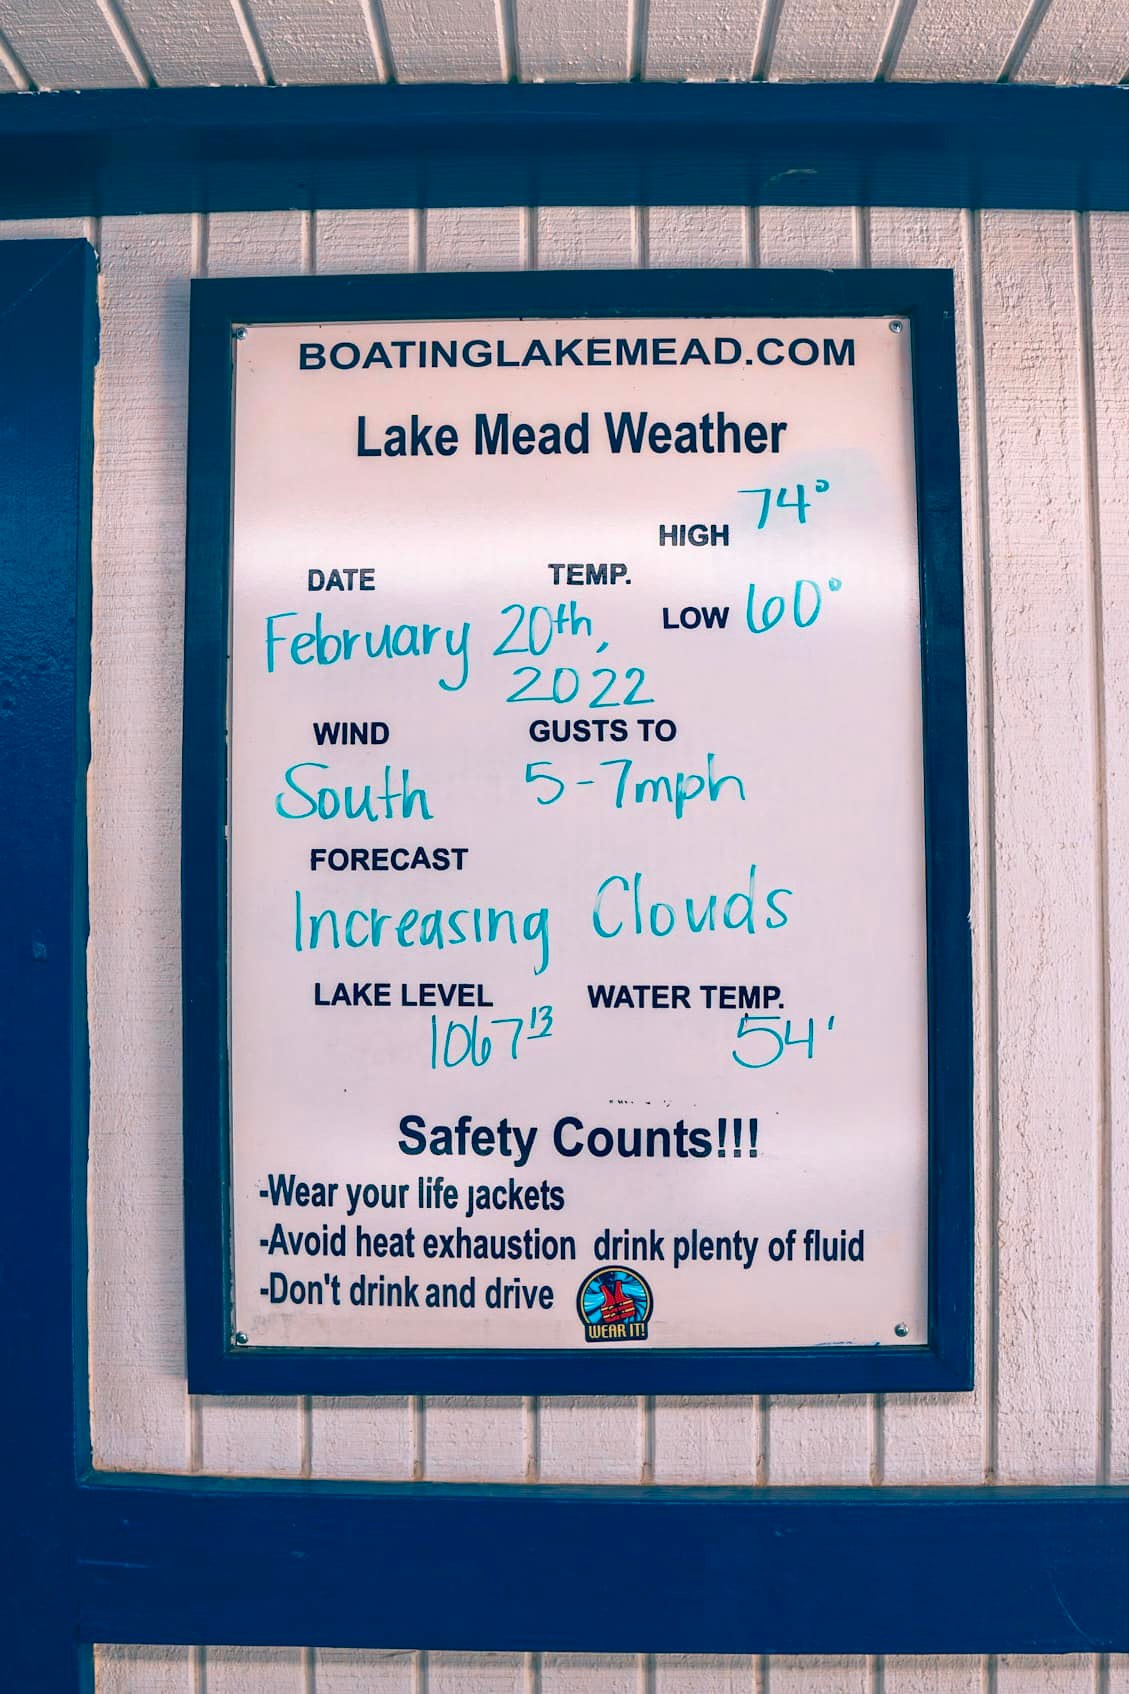 BOATINGLAKEMEAD.COM
Lake Mead Weather
HIGH 74°
DATE TEMP.
LOW 60°
February 20th,
2022
WIND GUSTS TO
South 5-7mph
FORECAST
Increasing Clouds
LAKE LEVEL WATER TEMP.
1067¹³ 54'
Safety Counts!!!
-Wear your life jackets
-Avoid heat exhaustion drink plenty of fluid
-Don't drink and drive
WEAR IT!